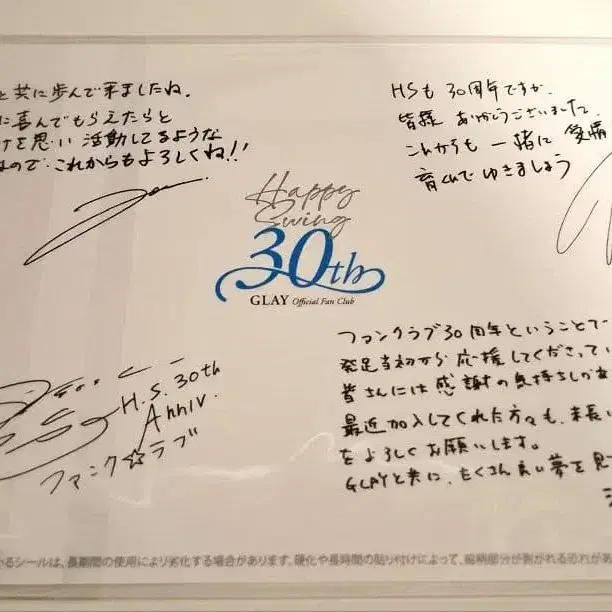 と共に歩んで来ましたね。
に喜んでもらえたらと
けを思い活動してるような
なので、これからもよろしくね!!
HSも30周年ですか。
皆様ありがとうございました。
これからも一緒に愛情
育くんでゆきましょう
Happy
Swing
30th
GLAY Official Fan Club
H.S. 30th
Anniv.
ファンク☆ラブ
ファンクラブ30周年ということで
発足当初から応援してくださってい
皆さんには感謝の気持ちしかあ
最近加入してくれた方々も、末長い
をよろしくお願いします。
GLAYと共に、たくさん良い夢を見
るシールは、長期間の使用により劣化する場合があります。硬化や長時間の貼り付けによって、総柄部分が剥がれる恐れがあ